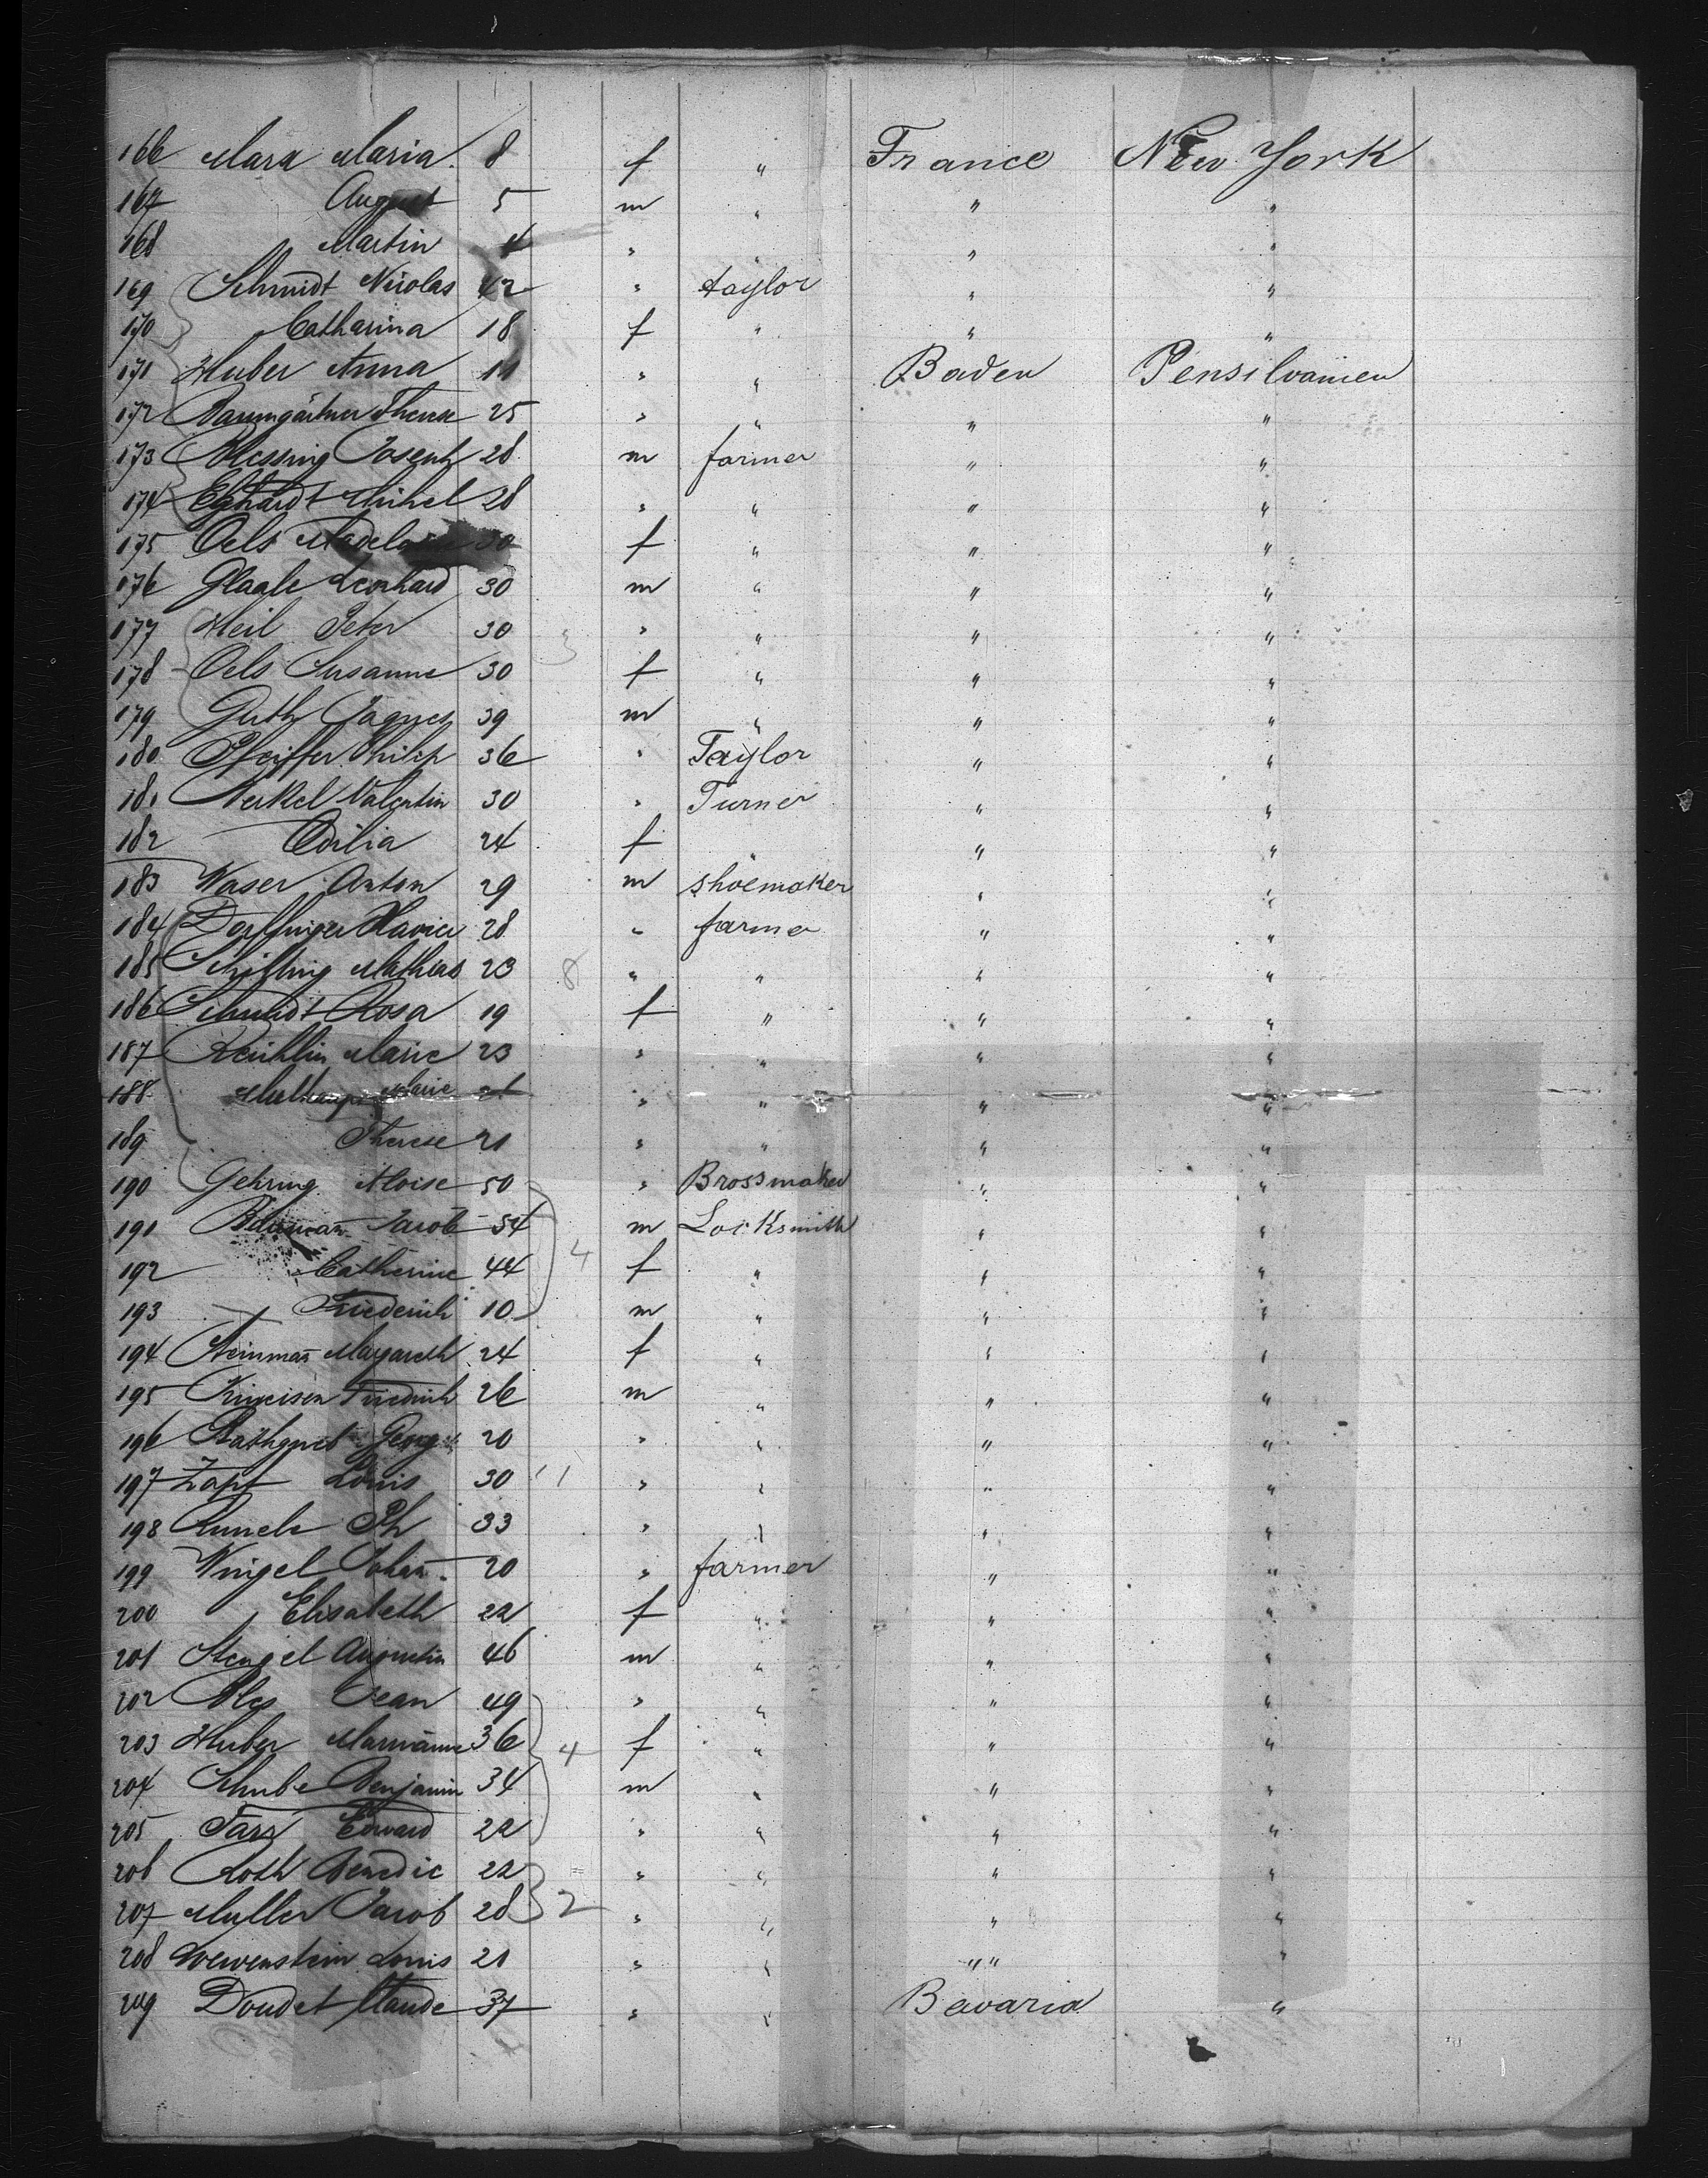 166 Marx Maria 8 f " France New York
167 August 5 m " " "
168 Martin 4 " " " "
169 Schmidt Nicolas 42 " taylor " "
170 Catharina 18 f " " "
171 Huber Anna 11 " " Baden Pensilvanien
172 Baumgärtner Therese 25 " " " "
173 Blessing Joseph 28 m farmer " "
174 Eghardt Michel 28 " " " "
175 Oels 30 f " " "
176 Leonhard 30 m " " "
177 Heil Peter 30 " " " "
3
178 Oels Susanne 30 f " " "
179 Guth Jaques 39 m " " "
180 Pfeiffer Philip 36 " Taylor " "
181 Merkel Valentin 30 " Turner " "
182 Odilia 24 f " " "
183 Waser Anton 29 m shoemaker " "
184 Dorffinger Xavier 28 " farmer " "
185 Schilling Mathias 23 8 " " " "
186 Schmidt Rosa 19 f " " "
187 Reichlin Marie 23 " " " "
188 Marie 21 " " " "
189 Therese 21 " " " "
190 Gehring Aloise 50 " Brossmaker " "
191 Jacob 54 m Locksmith " "
192 Catherine 44 4 f " " "
193 Friederich 10 m " " "
194 Steinman̄ Margareth 24 f " " "
195 Friedrich 26 m " " "
196 Georg 20 " " " "
197 Zapf Louis 30 11 " " " "
198 Ph 33 " " " "
199 Wingel Johan̄ 20 " farmer " "
200 Elisabeth 22 f " " "
201 Stengel Augustin 46 m " " "
202 Jean 49 " " " "
203 Huber Mariānne 36 4 f " " "
204 Benjamin 34 m " " "
205 Edward 22 " " " "
206 Roth Benedic 22 " " " "
207 Muller Jacob 28 2 " " " "
208 Loewenstein Louis 21 " " " "
209 Doudet Claude 37 " " Bavaria "